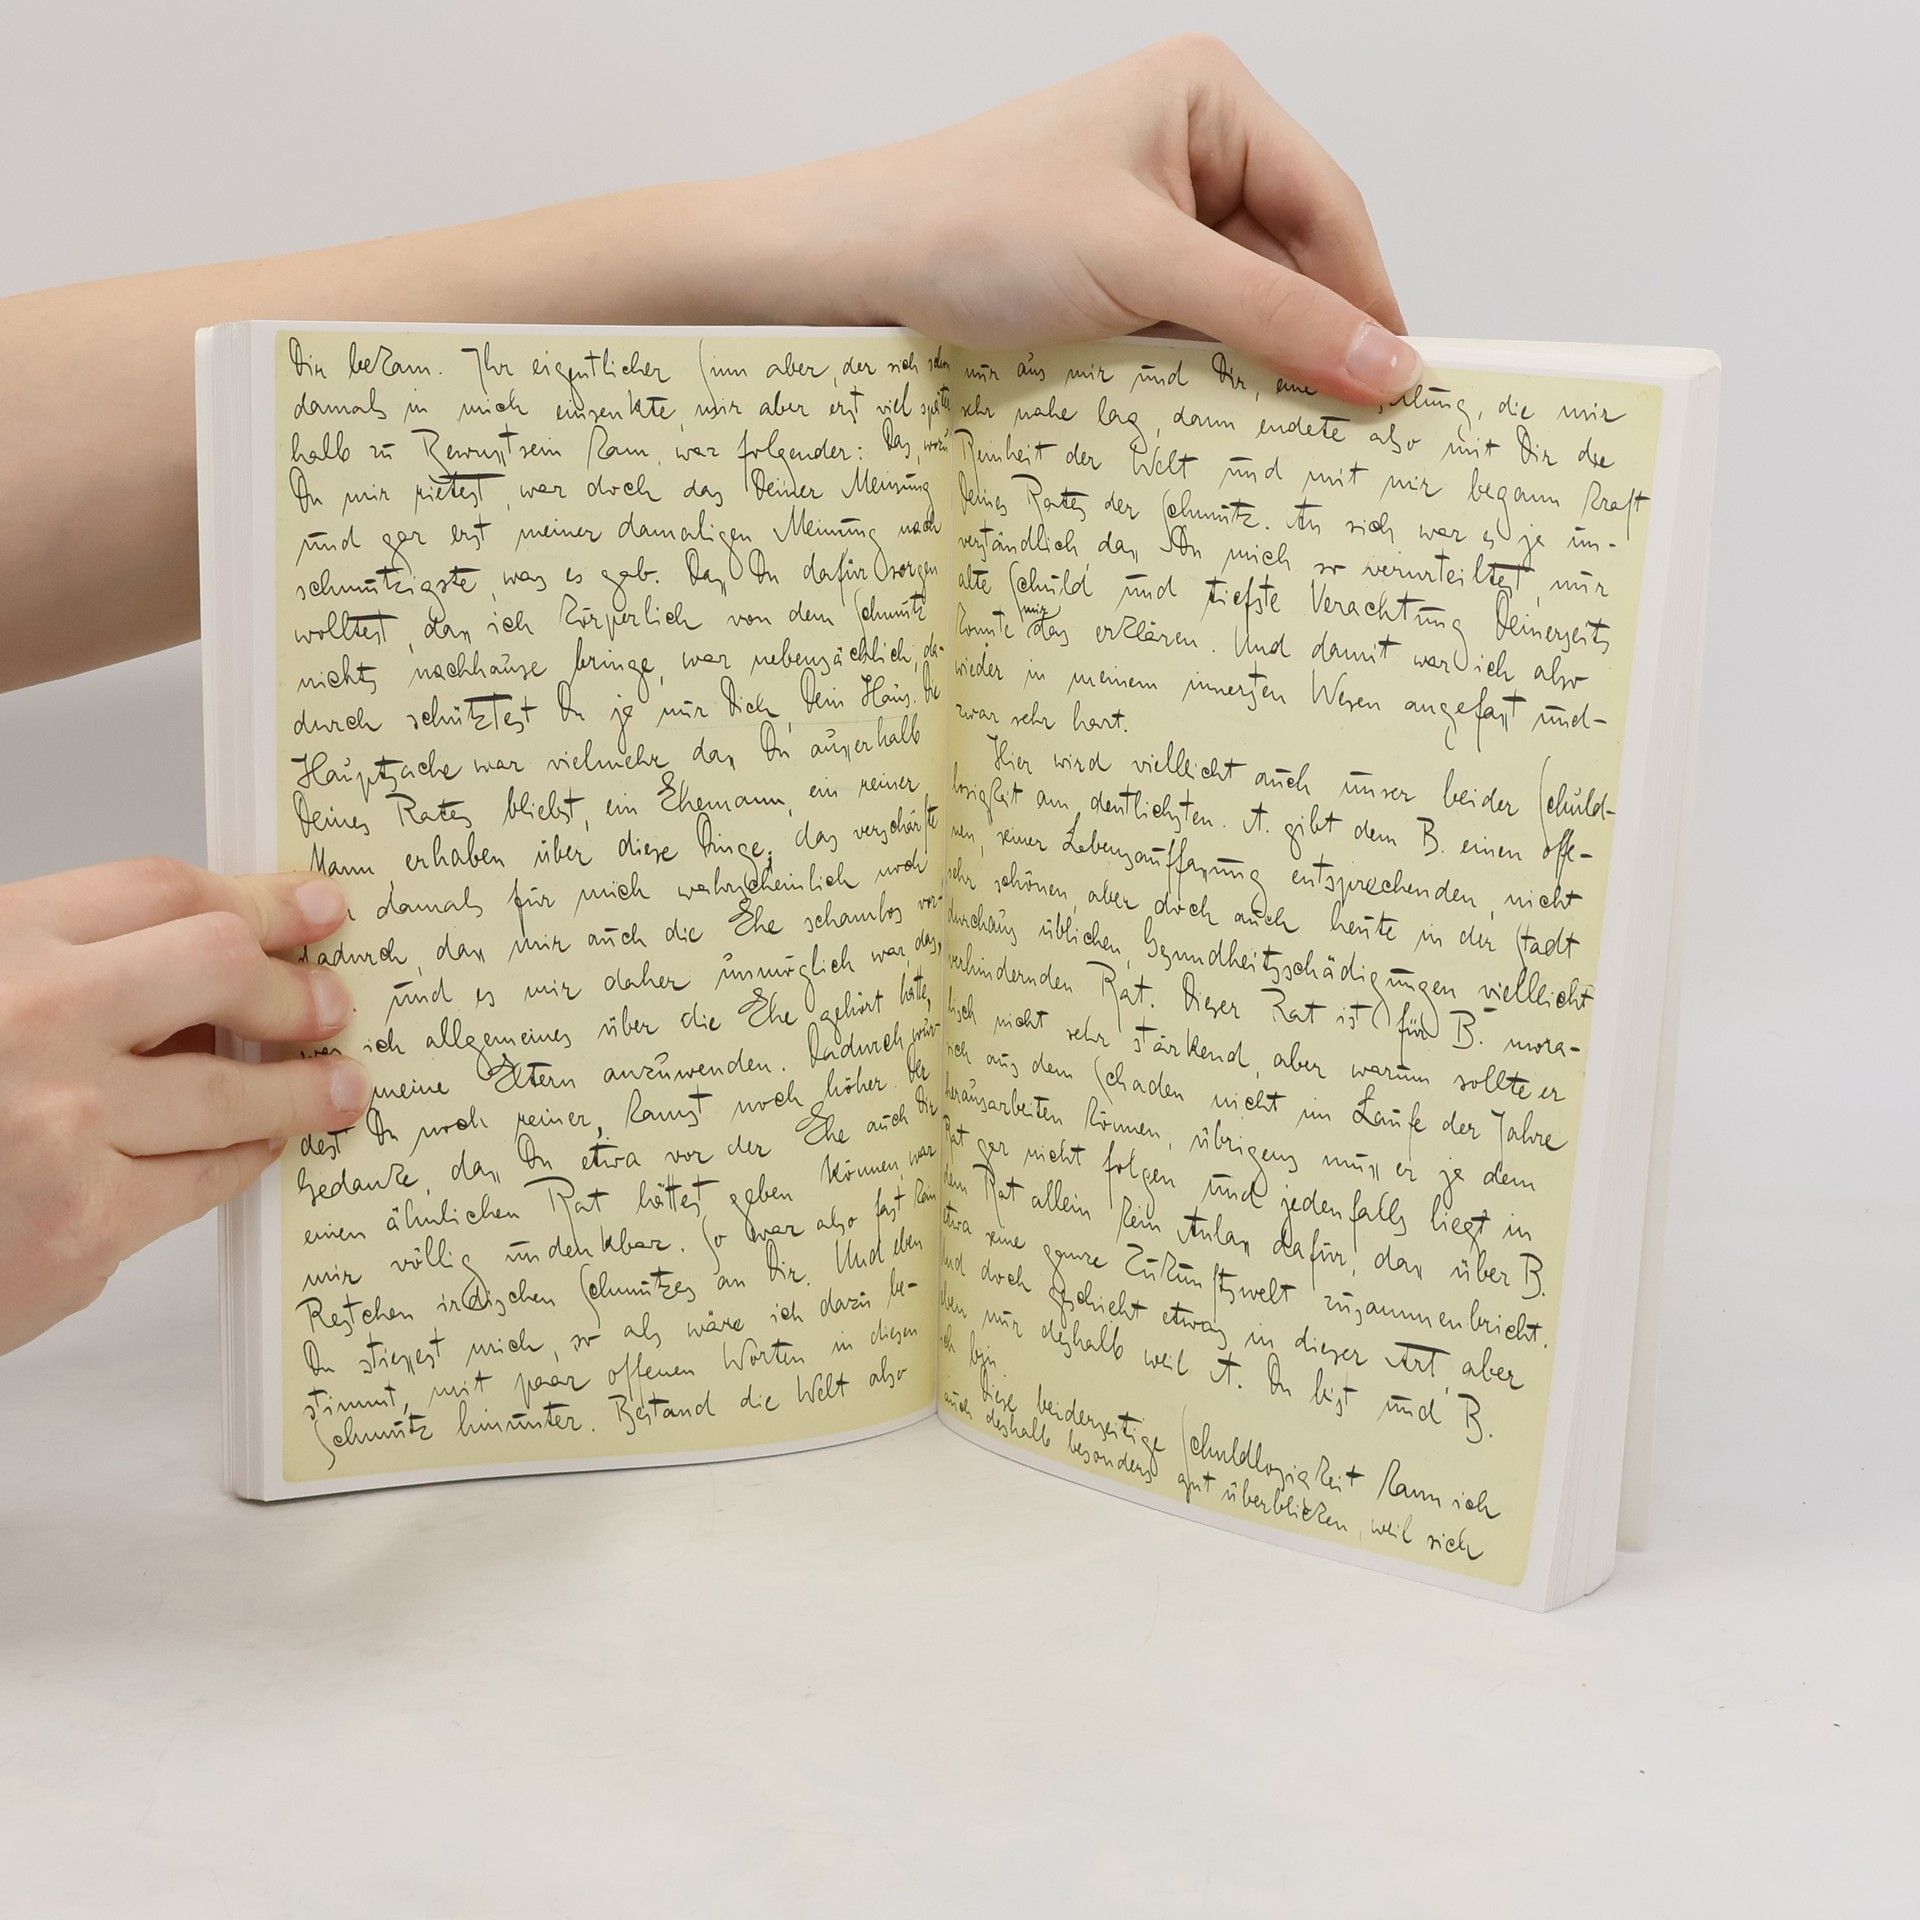 Dir bekam. Ihr eigentlicher Sinn aber, der sich schon
damals in mich einsenkte, mir aber erst viel später
halb zu Bewußtsein kam, war folgender: Das, wozu
Du mir rietest, war doch das Deiner Meinung
und gar erst meiner damaligen Meinung nach
schmutzigste, was es gab. Daß Du dafür sorgen
wolltest, daß ich körperlich von dem Schmutz
nichts nachhause bringe, war nebensächlich, da-
durch schütztest Du ja nur Dich, Dein Haus. Die
Hauptsache war vielmehr daß Du außerhalb
Deines Rates bliebst, ein Ehemann, ein reiner
Mann erhaben über diese Dinge; das verschärfte
damals für mich wahrscheinlich noch
dadurch, daß mir auch die Ehe schamlos vor-
und es mir daher unmöglich war, das,
was ich allgemeines über die Ehe gehört hatte,
meine Eltern anzuwenden. Dadurch wur-
dest Du noch reiner, kamst noch höher. Der
Gedanke, daß Du etwa vor der Ehe auch Dir
einen ähnlichen Rat hättest geben können, war
mir völlig undenkbar. So war also fast kein
Restchen irdischen Schmutzes an Dir. Und eben
Du stießest mich, so als wäre ich dazu be-
stimmt, mit paar offenen Worten in diesen
Schmutz hinunter. Bestand die Welt also
nur aus mir und Dir, eine die mir
sehr nahe lag, dann endete also mit Dir die
Reinheit der Welt und mit mir begann kraft
Deines Rates der Schmutz. An sich war es ja un-
verständlich daß Du mich so verurteiltest, nur
alte Schuld und tiefste Verachtung Deinerseits
konnte mir das erklären. Und damit war ich also
wieder in meinem innersten Wesen angefaßt und-
zwar sehr hart.
Hier wird vielleicht auch unser beider Schuld-
losigkeit am deutlichsten. A. gibt dem B. einen offe-
nen, seiner Lebensauffassung entsprechenden, nicht
sehr schönen, aber doch auch heute in der Stadt
durchaus üblichen, Gesundheitsschädigungen vielleicht
verhindernden Rat. Dieser Rat ist für B. mora-
lisch nicht sehr stärkend, aber warum sollte er
sich aus dem Schaden nicht im Laufe der Jahre
herausarbeiten können, übrigens muß er ja dem
Rat gar nicht folgen und jedenfalls liegt in
dem Rat allein kein Anlaß dafür, daß über B.
etwa seine ganze Zukunftswelt zusammenbricht.
Und doch geschieht etwas in dieser Art, aber
eben nur deshalb weil A. Du bist und B.
ich bin
Diese beiderseitige Schuldlosigkeit kann ich
auch deshalb besonders gut überblicken, weil sich